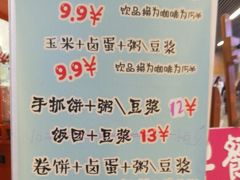 9.9¥ 饮品换为咖啡为15¥
玉米+卤蛋+粥\豆浆
9.9¥ 饮品换为咖啡为15¥
手抓饼+粥\豆浆 12¥
饭团+豆浆 13¥
卷饼+卤蛋+粥\豆浆